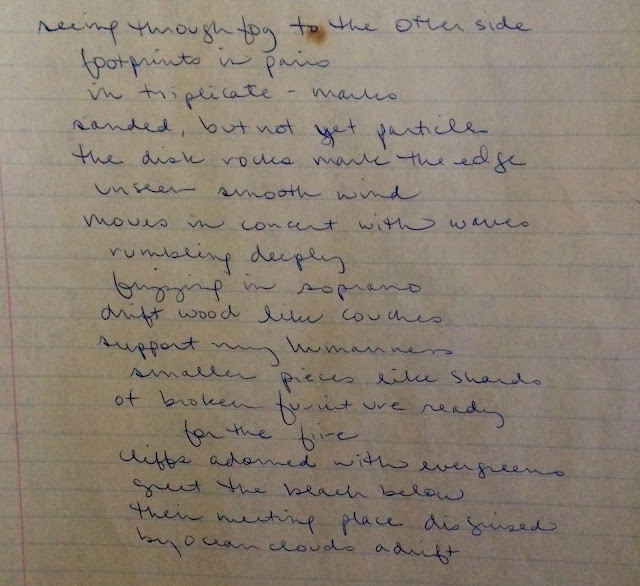 seeing through fog to the other side
footprints in pairs
in triplicate - marks
sanded, but not yet particles
the disk rocks mark the edge
unseen smooth wind
moves in concert with waves
rumbling deeply
fizzing in soprano
drift wood like couches
support my humanness
smaller pieces like shards
of broken furniture ready
for the fire
cliffs adorned with evergreens
greet the beach below
their meeting place disguised
by ocean clouds adrift